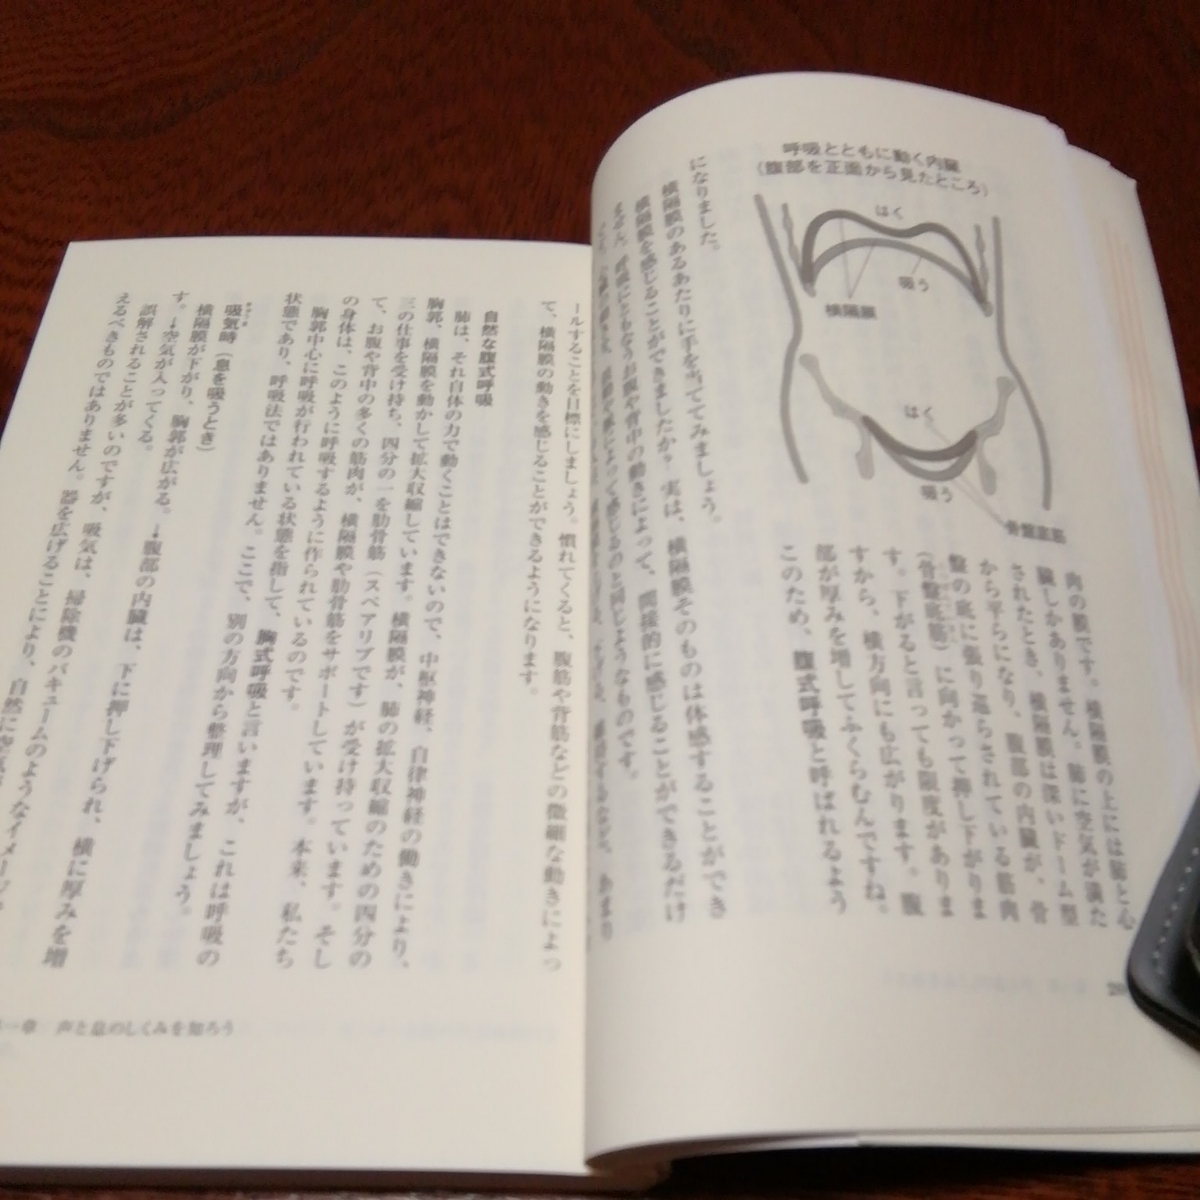 呼吸とともに動く内臓
(腹部を正面から見たところ)
はく
吸う
横隔膜
はく
吸う
骨盤底筋
肉の膜です。横隔膜の上には肺と心
臓しかありません。肺に空気が満た
されたとき、横隔膜は深いドーム型
から平らになり、腹部の内臓が、骨
盤の底に張り巡らされている筋肉
(骨盤底筋)に向かって押し下がりま
す。下がると言っても限度がありま
すから、横方向にも広がります。腹
部が厚みを増してふくらむんですね。
このため、腹式呼吸と呼ばれるよう
になりました。
横隔膜のあるあたりに手を当ててみましょう。
横隔膜を感じることができましたか？実は、横隔膜そのものは体感することができ
ません。呼吸にともなうお腹や背中の動きによって、間接的に感じることができるだけ
によって感じるのと同じようなものです。
ールすることを目標にしましょう。慣れてくると、腹筋や背筋などの微細な動きによっ
て、横隔膜の動きを感じることができるようになります。
自然な腹式呼吸
肺は、それ自体の力で動くことはできないので、中枢神経、自律神経の働きにより、
胸郭、横隔膜を動かして拡大収縮しています。横隔膜が、肺の拡大収縮のための四分の
三の仕事を受け持ち、四分の一を肋骨筋(スペアリブです)が受け持っています。そし
て、お腹や背中の多くの筋肉が、横隔膜や肋骨筋をサポートしています。本来、私たち
の身体は、このように呼吸するように作られているのです。
胸郭中心に呼吸が行われている状態を指して、胸式呼吸と言いますが、これは呼吸の
状態であり、呼吸法ではありません。ここで、別の方向から整理してみましょう。
吸気時(息を吸うとき)
横隔膜が下がり、胸郭が広がる。→腹部の内臓は、下に押し下げられ、横に厚みを増
す。→空気が入ってくる。
誤解されることが多いのですが、吸気は、掃除機のバキュームのようなイメージ
えるべきものではありません。器を広げることにより、自然に空気
一章 声と息のしくみを知ろう